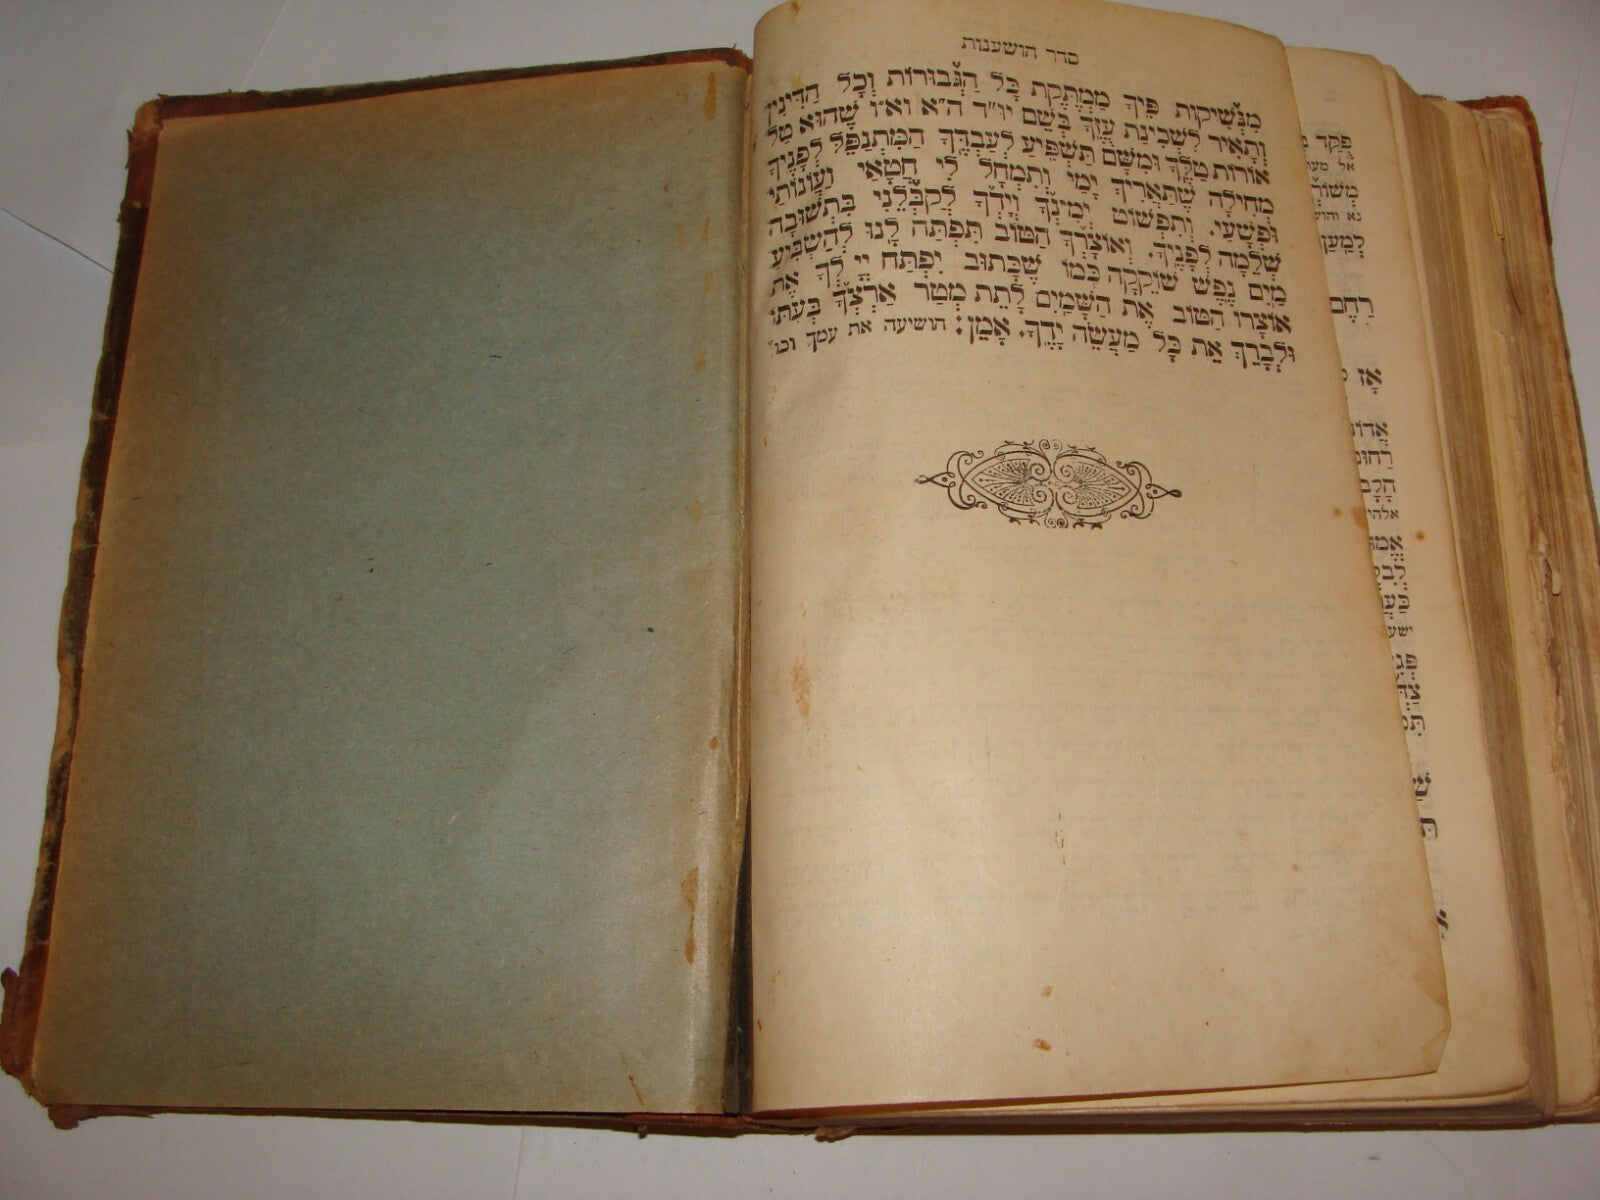 סדר הושענות
מִנְּשִׁיקוֹת פִּיךָ מְמַתֶּקֶת כָּל הַגְּבוּרוֹת וְכָל הַדִּינִין
וְתָאִיר לִשְׁכִינַת עֻזֶּךָ בְּשֵׁם יוּ"ד הֵ"א וָא"ו שֶׁהוּא טַל
אוֹרוֹת טַלֶּךָ וּמִשָּׁם תַּשְׁפִּיעַ לְעַבְדֶּךָ הַמִּתְנַפֵּל לְפָנֶיךָ
מְחִילָה שֶׁתַּאֲרִיךְ יָמַי וְתִמְחָל לִי חֲטָאַי וַעֲוֹנוֹתַי
וּפְשָׁעַי. וְתִפְשׁוֹט יְמִינְךָ וְיָדְךָ לְקַבְּלֵנִי בִּתְשׁוּבָה
שְׁלֵמָה לְפָנֶיךָ. וְאוֹצָרְךָ הַטּוֹב תִּפְתַּח לָנוּ לְהַשְׂבִּיעַ
מַיִם נֶפֶשׁ שׁוֹקֵקָה כְּמוֹ שֶׁכָּתוּב יִפְתַּח יְיָ לְךָ אֶת
אוֹצָרוֹ הַטּוֹב אֶת הַשָּׁמַיִם לָתֵת מְטַר אַרְצְךָ בְּעִתּוֹ
וּלְבָרֵךְ אֵת כָּל מַעֲשֵׂה יָדֶךָ. אָמֵן: הושיעה את עמך וכו'
פְּקֹד
אל
לְמַעַן
רַחֵם
אָז